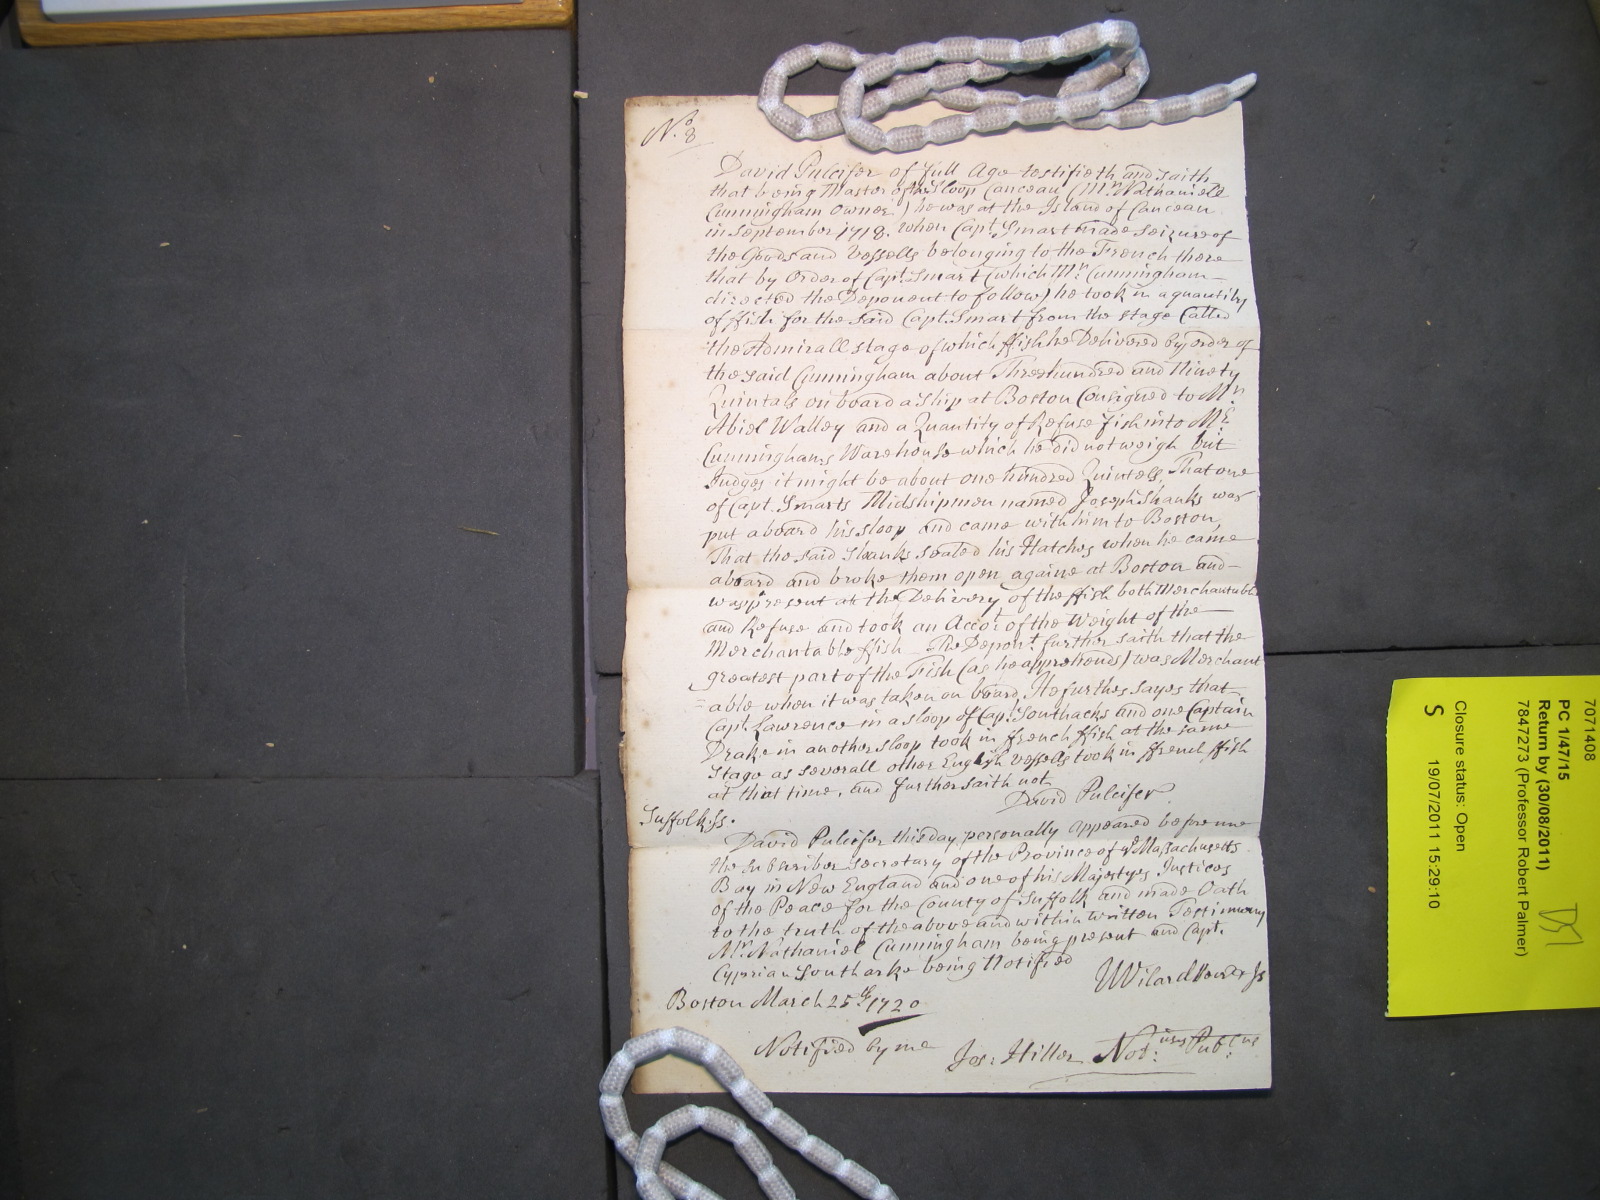 No. 8
David Pulcifer of full Age testifieth and saith
that being Master of the Sloop Canceau (Mr. Nathaniell
Cunningham Owner) he was at the Island of Canceau
in September 1718. when Capt. Smart made Seizure of
the Goods and Vessells belonging to the French there
that by Order of Capt. Smart (which Mr. Cunningham
directed the Deponent to follow) he took in a quantity
of ffish for the said Capt. Smart from the stage Called
the Admirall stage of which ffish he Delivered by order of
the said Cunningham about Threehundred and Ninety
Quintals on board a Ship at Boston Consigned to Mr.
Abiel Walley and a Quantity of Refuse fish into Mr.
Cunninghams Warehouse which he did not weigh but
Judges it might be about one hundred Quintels, That one
of Capt. Smarts Midshipmen named Joseph Shanks was
put aboard his sloop and came with him to Boston,
That the said Shanks sealed his Hatches when he came
aboard and broke them open againe at Boston and
was present at the Delivery of the ffish both Merchantable
and Refuse and took an Accot. of the Weight of the
Merchantable ffish The Depont. further saith that the
greatest part of the Fish (as he apprehends) was Merchant
=able when it was taken on board, He further sayes that
Capt. Lawrence in a sloop of Capt. Southacks and one Captain
Drake in another sloop took in ffrench ffish at the same
Stage as severall other English vessells took in ffrench ffish
at that time, and further saith not
David Pulcifer
Suffolk ss.
David Pulcifer this day personally appeared before me
the Subscriber secretary of the Province of ye Massachusetts
Bay in New England and one of his Majestyes Justices
of the Peace for the County of Suffolk and made Oath
to the truth of the above and within written Testimony
Mr. Nathaniel Cunningham being present and Capt.
Cyprian Southacke being Notified
Boston March 25th 1720
Notified by me
Jos: Hiller Not:ius Pub:cus
7071408
PC 1/47/15
Return by (30/08/2011)
7847273 (Professor Robert Palmer)
Closure status: Open
S 19/07/2011 15:29:10